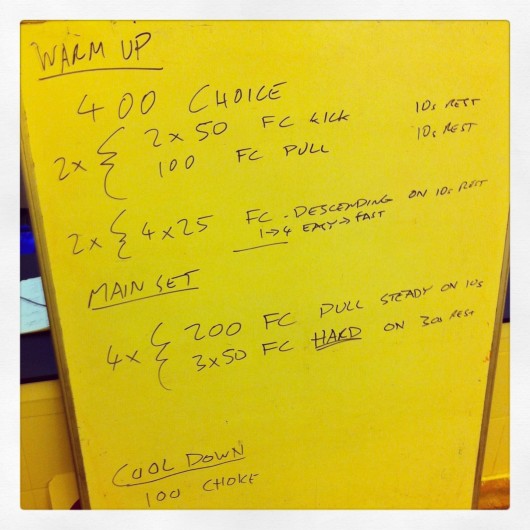 WARM UP
400 CHOICE
2x { 2 x 50 FC KICK 10s REST
100 FC PULL 10s REST
2x { 4 x 25 FC - DESCENDING ON 10s REST
1→4 EASY → FAST
MAIN SET
4x { 200 FC PULL STEADY ON 10s
3x50 FC HARD ON 30s REST
COOL DOWN
100 CHOICE